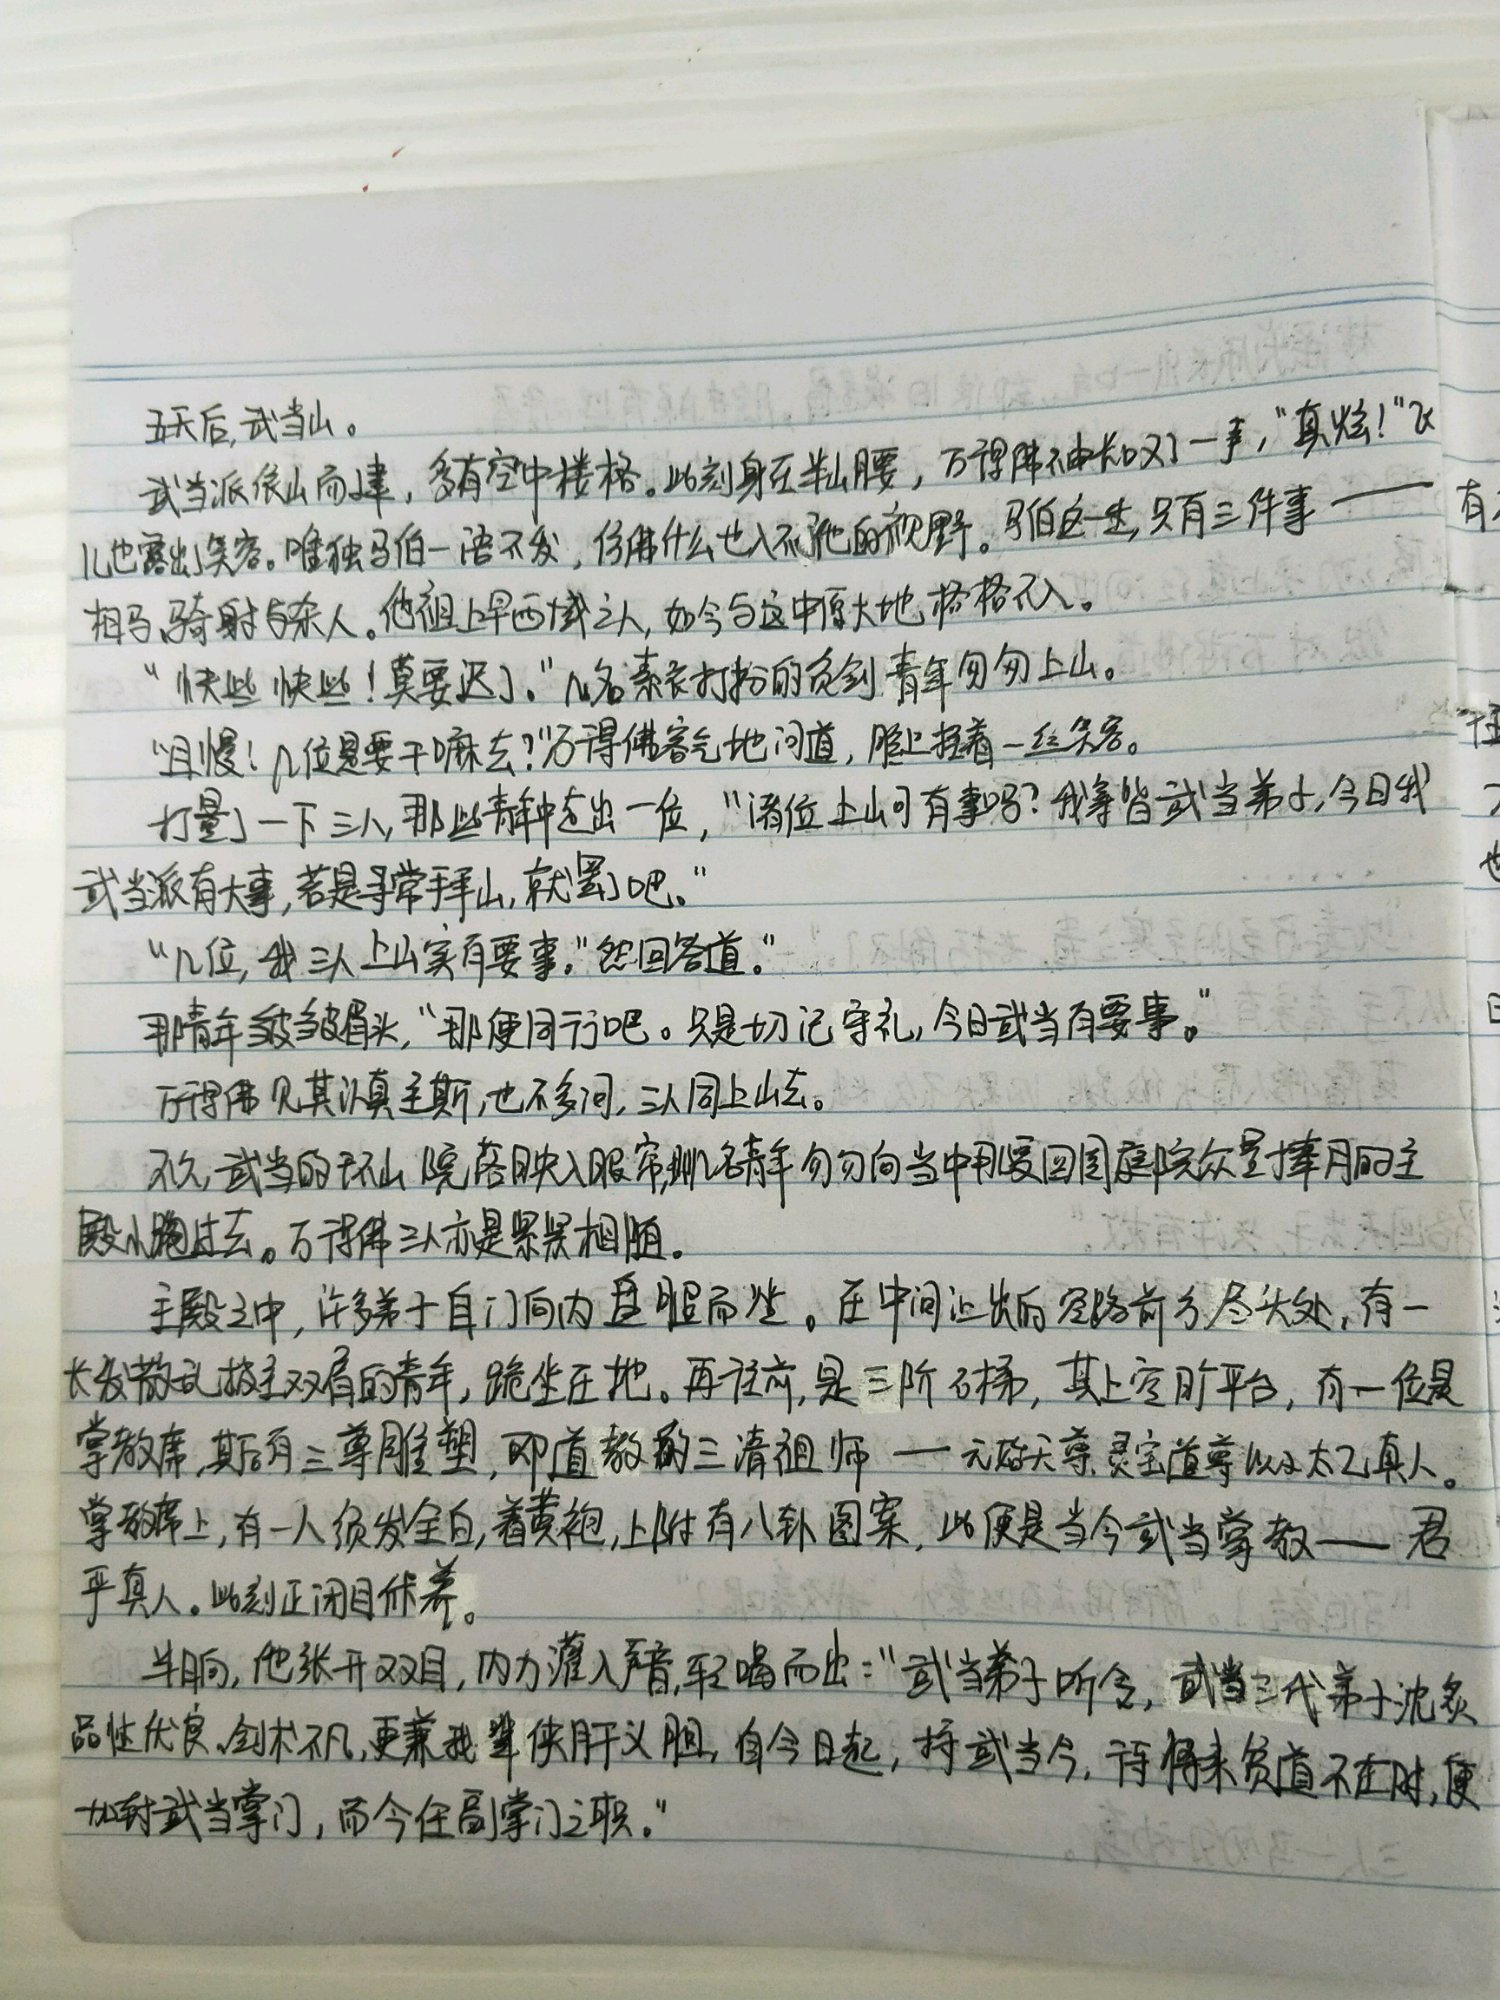 五天后,武当山。
武当派依山而建,多有空中楼格。此刻身在半山腰,万得佛不由大叹了一声,“真炫!”飞
儿也露出了笑容。唯独马伯一语不发,仿佛什么也入不了他的视野。马伯这一生,只有三件事——
相马、骑射与杀人。他祖上早西域之人,如今与这中原大地格格不入。
“快些快些!莫要迟了。”几名素衣打扮的负剑青年匆匆上山。
“且慢!几位是要干嘛去?”万得佛客气地问道,脸上挂着一丝笑容。
打量了一下三人,那些青年中走出一位,“诸位上山可有事吗?我等皆武当弟子,今日我
武当派有大事,若是寻常拜山,就罢了吧。”
“几位,我三人上山实有要事。”回答道。”
那青年皱皱眉头,“那便同行吧。只是切记守礼,今日武当有要事。”
万得佛见其认真至斯,也不多问,三人同上山去。
不久,武当的环山院落映入眼帘,那几名青年匆匆向当中那要四周庭院众星捧月的主
殿小跑过去。万得佛三人亦是紧紧相随。
主殿之中,许多弟子自门向内盘腿而坐。在中间让出的空路前方尽头处,有一
长发散乱披至双肩的青年,跪坐在地。再往前,是三阶石梯,其上空旷平台,有一位是
掌教席,其后有三尊雕塑,即道教的三清祖师——元始天尊、灵宝道尊以及太乙真人。
掌教席上,有一人须发全白,着黄袍,上附有八卦图案,此便是当今武当掌教——君
平真人。此刻正闭目休养。
半晌,他张开双目,内力灌入声音,轻喝而出:“武当弟子听令,武当三代弟子沈炙
品性优良、剑术不凡,更兼我辈侠肝义胆,自今日起,持武当令,待将来贫道不在时,便
加封武当掌门,而今任副掌门之职。”